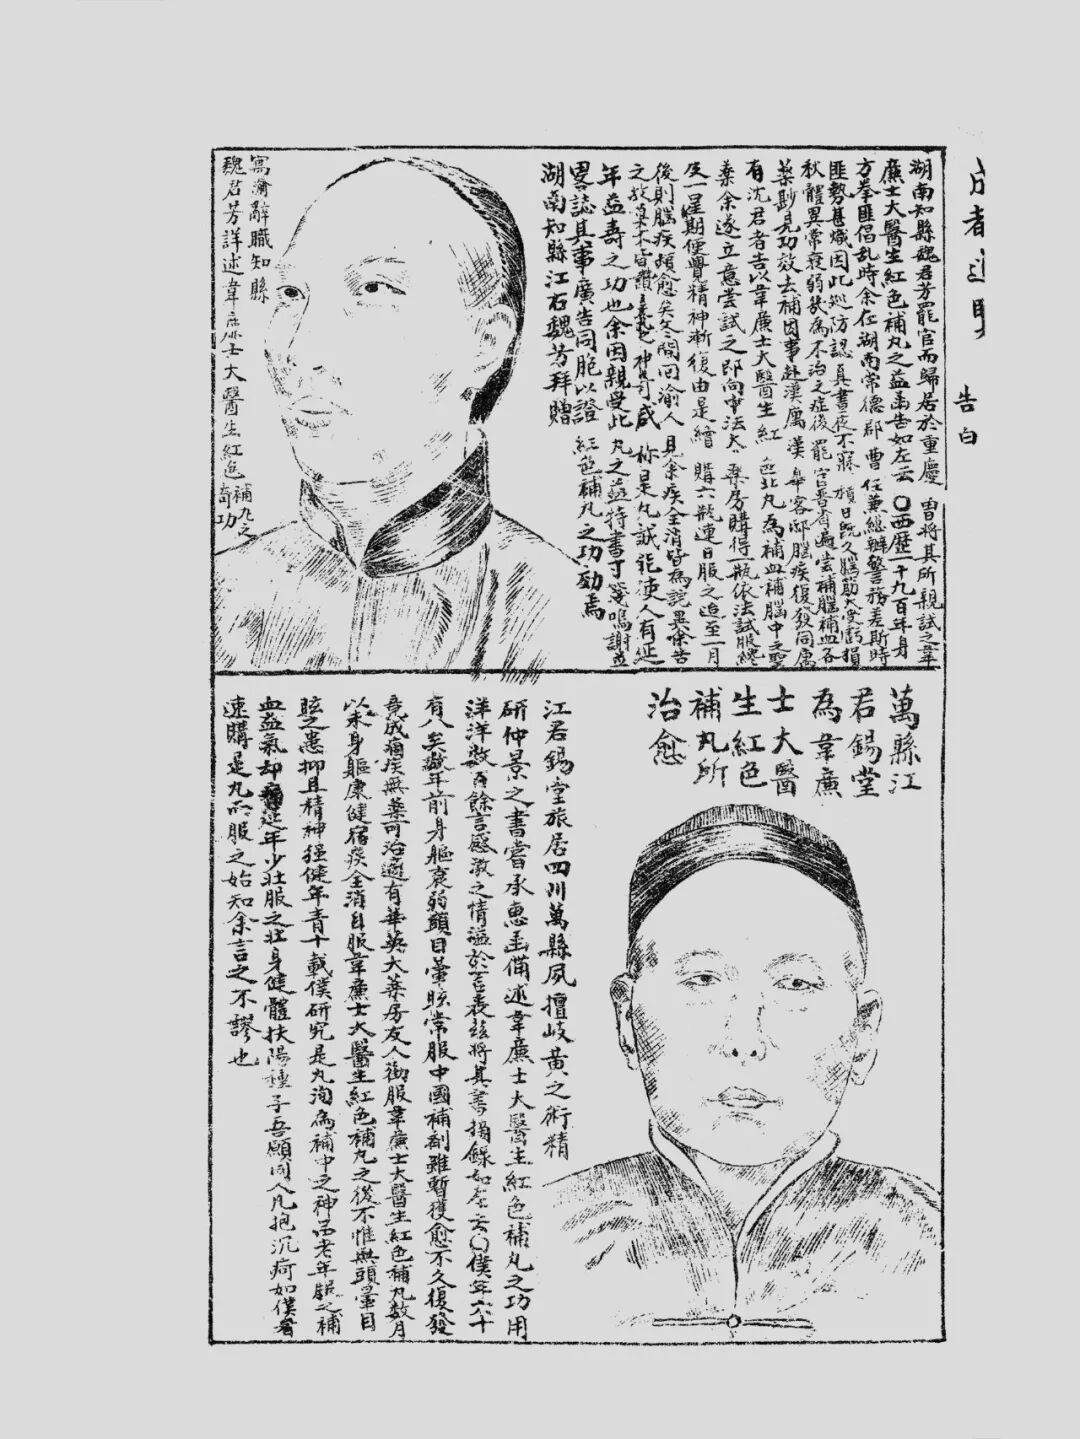 成都通覽
告白
湖南知縣魏君芳罷官而歸居於重慶 曾將其所親試之韋
廉士大醫生紅色補丸之益函告如左云 〇西歷一千九百年身
方拳匪倡乱時余在湖南常德郡曹任兼總辦警務差斯時
匪勢甚熾因此巡防認真晝夜不寐積日既久腦筋大受虧損
秋體異常衰弱幾為不治之症後罷官晋省遍尝補腦補血各
藥尠見功效去補因事赴漢厲漢皋客邸腦疾復發同寓
有沈君者告以韋廉士大醫生紅色此丸為補血補腦中之聖
藥余遂立意尝試之即向中法大藥房購得一瓶依法試服纔
及一星期便覺精神漸復由是續購六瓶連日服之迨至一月
後則腦疾頓愈矣冬間回渝人見余疾全消皆為詫異余告
之故莫不皆讚羨神奇咸称是丸誠能使人有延
年益壽之功也余因親受此丸之益特書寸箋鳴謝並
畧誌其事廣告同胞以證紅色補丸之功効焉
湖南知縣江右魏芳拜贈
寓渝辭職知縣
魏君芳詳述韋廉士大醫生紅色補丸之奇功
萬縣江
君錫堂
為韋廉
士大醫
生紅色
補丸所
治愈
江君錫堂旅居四川萬縣夙擅岐黄之術精
研仲景之書嘗承惠函備述韋廉士大醫生紅色補丸之功用
洋洋数百餘言感激之情溢於言表兹將其書揭錄如左云〇僕年六十
有八矣數年前身軀衰弱頭目暈眩常服中國補剤雖暫獲愈不久復發
竟成痼疾無藥可治適有華英大药房友人勸服韋廉士大醫生紅色補丸数月
以来身軀康健宿疾全消自服韋廉士大醫生紅色補丸之後不惟無頭暈目
眩之患抑且精神强健年青十載僕研究是丸洵為補中之神品老年服之補
血益氣却病延年少壮服之壮身健體扶陽種子吾願同人凡抱沉疴如僕者
速購是丸而服之始知余言之不謬也